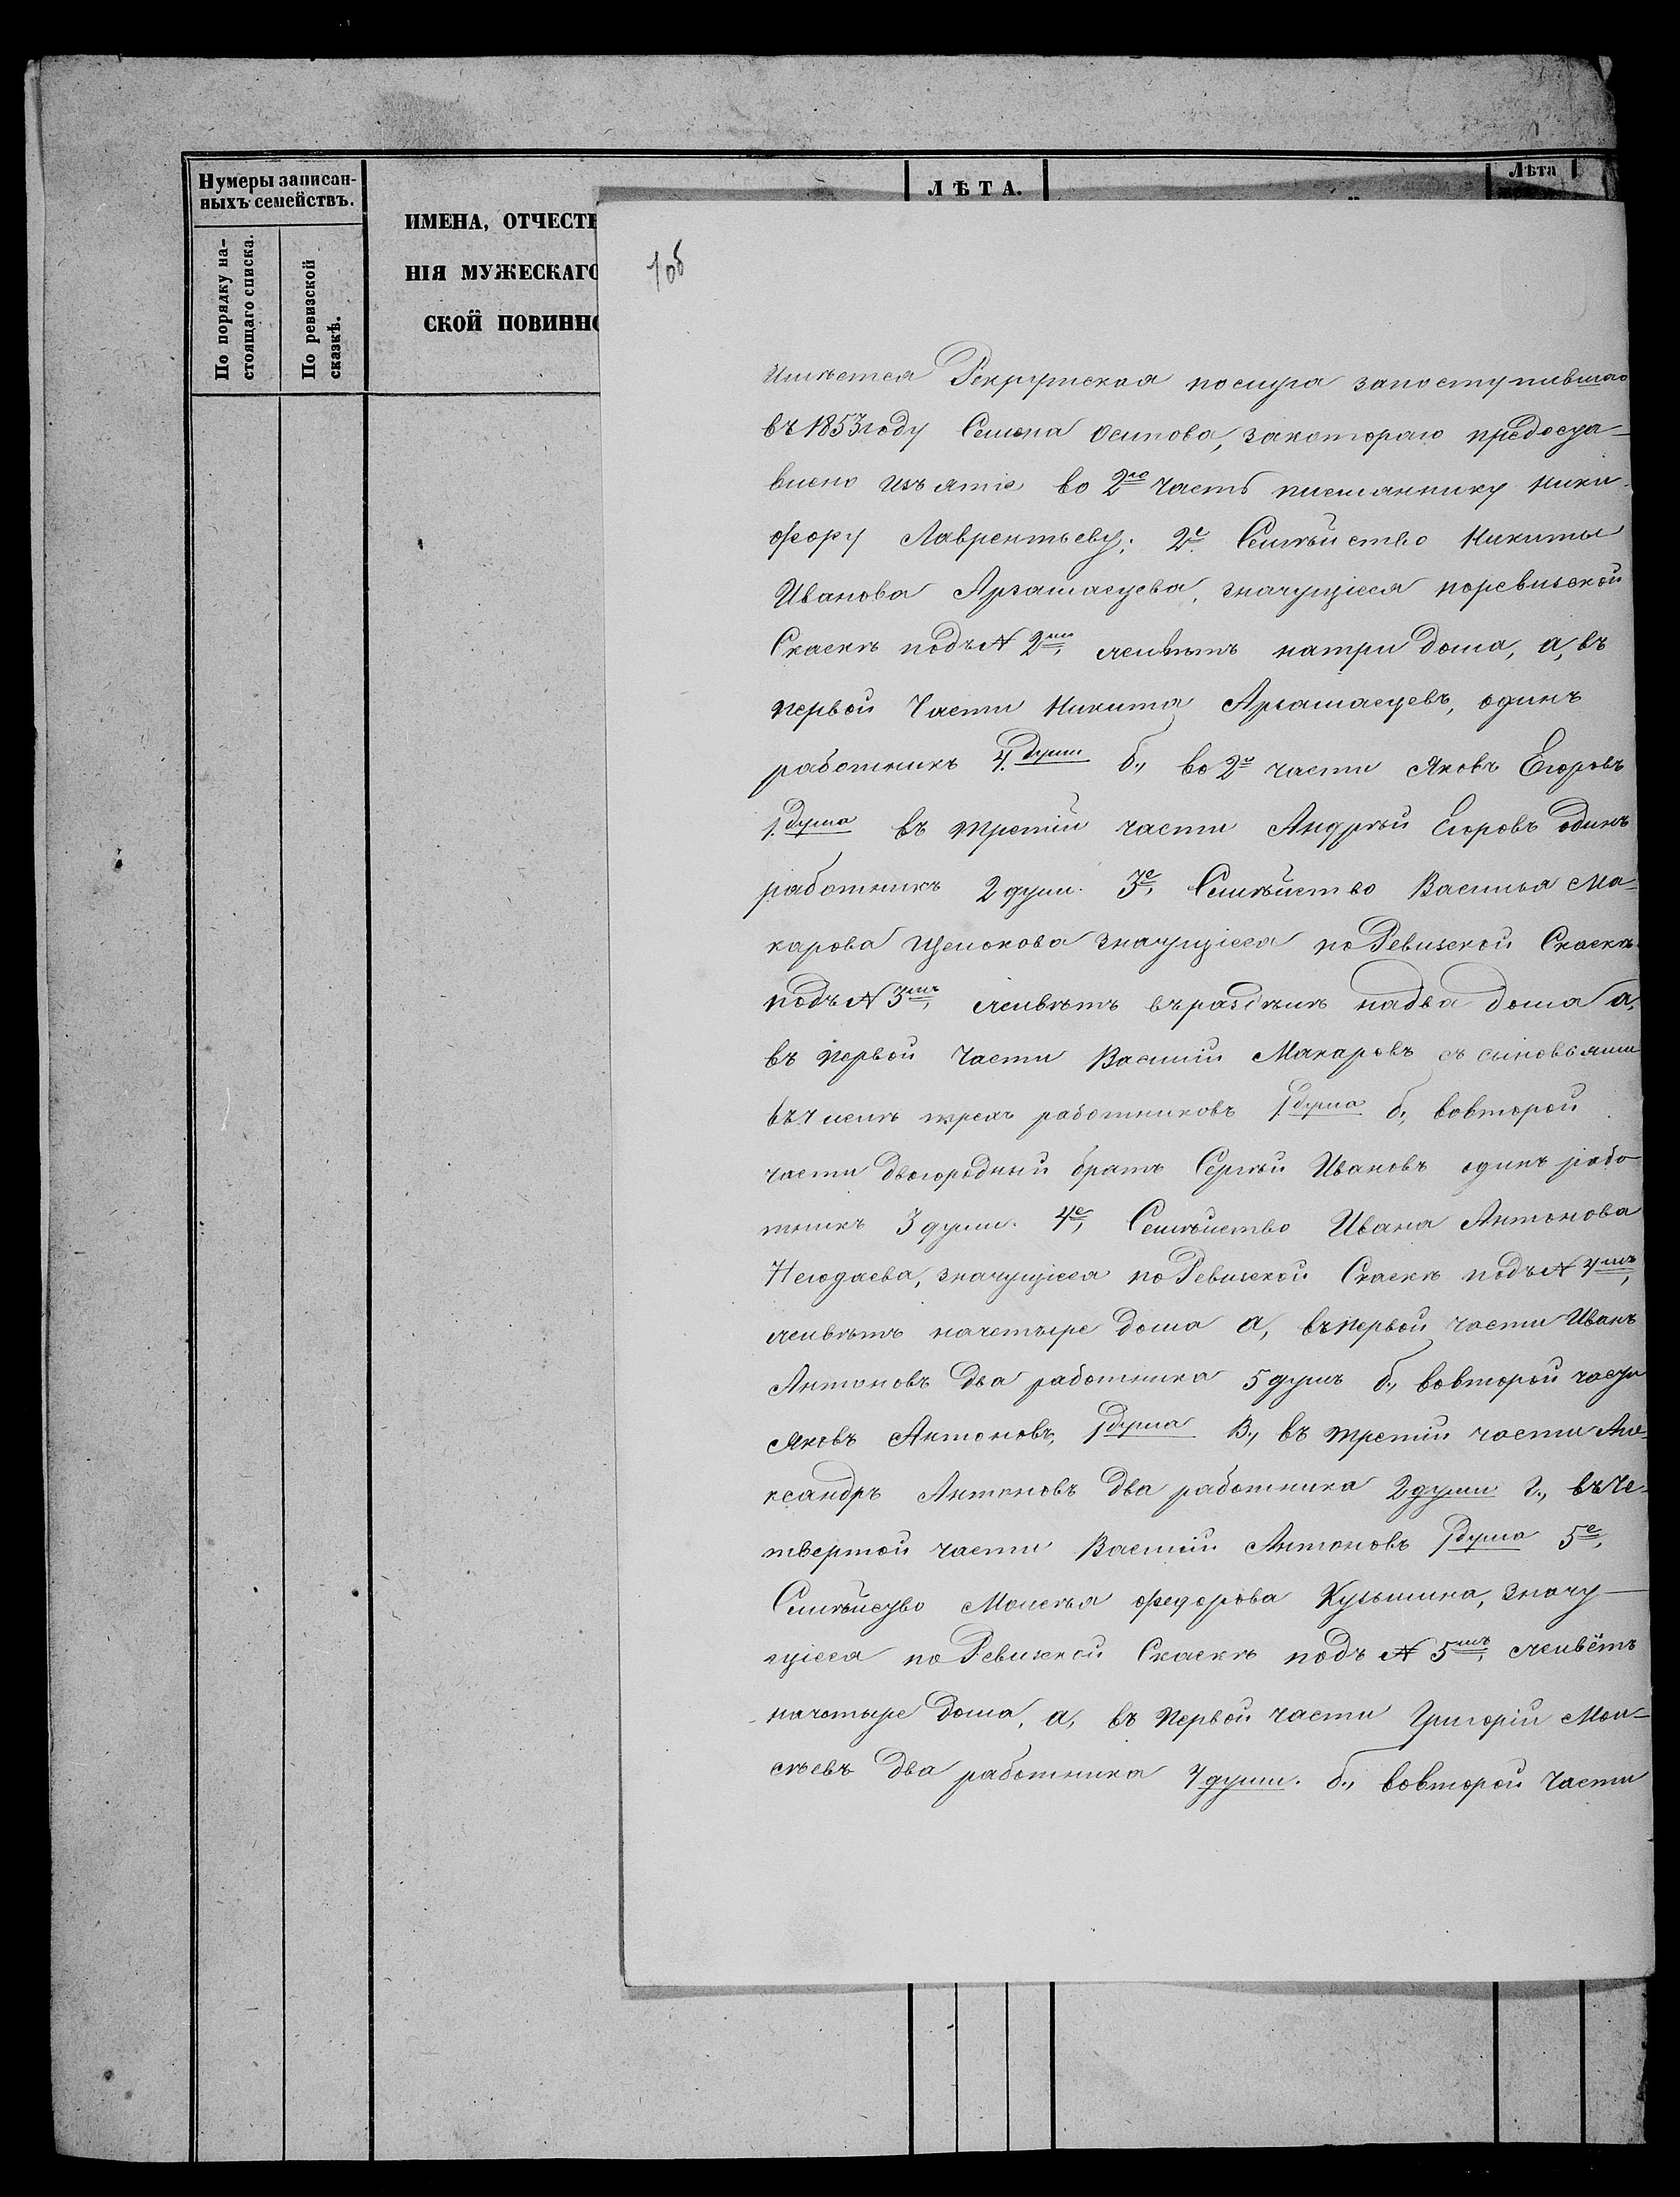 Нумеры записан-
ныхъ семействъ.
По порядку на-
стоящаго списка.
По ревизской
сказкѣ.
ИМЕНА, ОТЧЕСТВ
НІЯ МУЖЕСКАГО
СКОЙ ПОВИННО
ЛѢТА.
Лѣта
1об
имѣется Рекрутская послуга запоступившаго
въ 1853 году Семена Осипова, закотораго предоста-
влено изъятіе во 2ю часть племяннику Ники-
фору Лаврентьеву; 2е Семѣйство Никиты
Иванова Арзамасцева, значущіеся поревизской
Скаскѣ подъ № 2мъ, живѣтъ натри дома, а, въ
первой части Никита Арзамасцевъ, одинъ
работникъ 4 души б., во 2й части Яковъ Егоровъ
1 душа въ третій части Андрѣй Егоровъ одинъ
работникъ 2 души. 3е, Семѣйство Василья Ма-
карова Щелокова значущіеся по Ревизской Скаскѣ
подъ № 3мъ, живѣтъ въ раздѣлѣ надва дома а,
въ первой части Василій Макаровъ съ сыновьями
въ числѣ трехъ работниковъ 1 душа б., вовторой
части двоюродный братъ Сергѣй Ивановъ одинъ рабо
тникъ 3 души. 4е, Семѣйство Ивана Антонова
Негодяева, значущіеся по Ревизской Скаскѣ подъ № 4мъ,
живѣтъ начетыре дома а, въ первой части Иванъ
Антоновъ два работника 5 душъ б., вовторой части
Яковъ Антоновъ, 1 душа в., въ третій части Але-
ксандръ Антоновъ два работника 2 души г., въ че-
твертой части Василій Антоновъ 1 душа 5е,
Семѣйство Моисѣя Федорова Кузьмина, значу-
щіеся по Ревизской Скаскѣ подъ № 5мъ, живётъ
начетыре дома, а, въ первой части Григорій Мои-
сѣевъ два работника 4 души. б., вовторой части